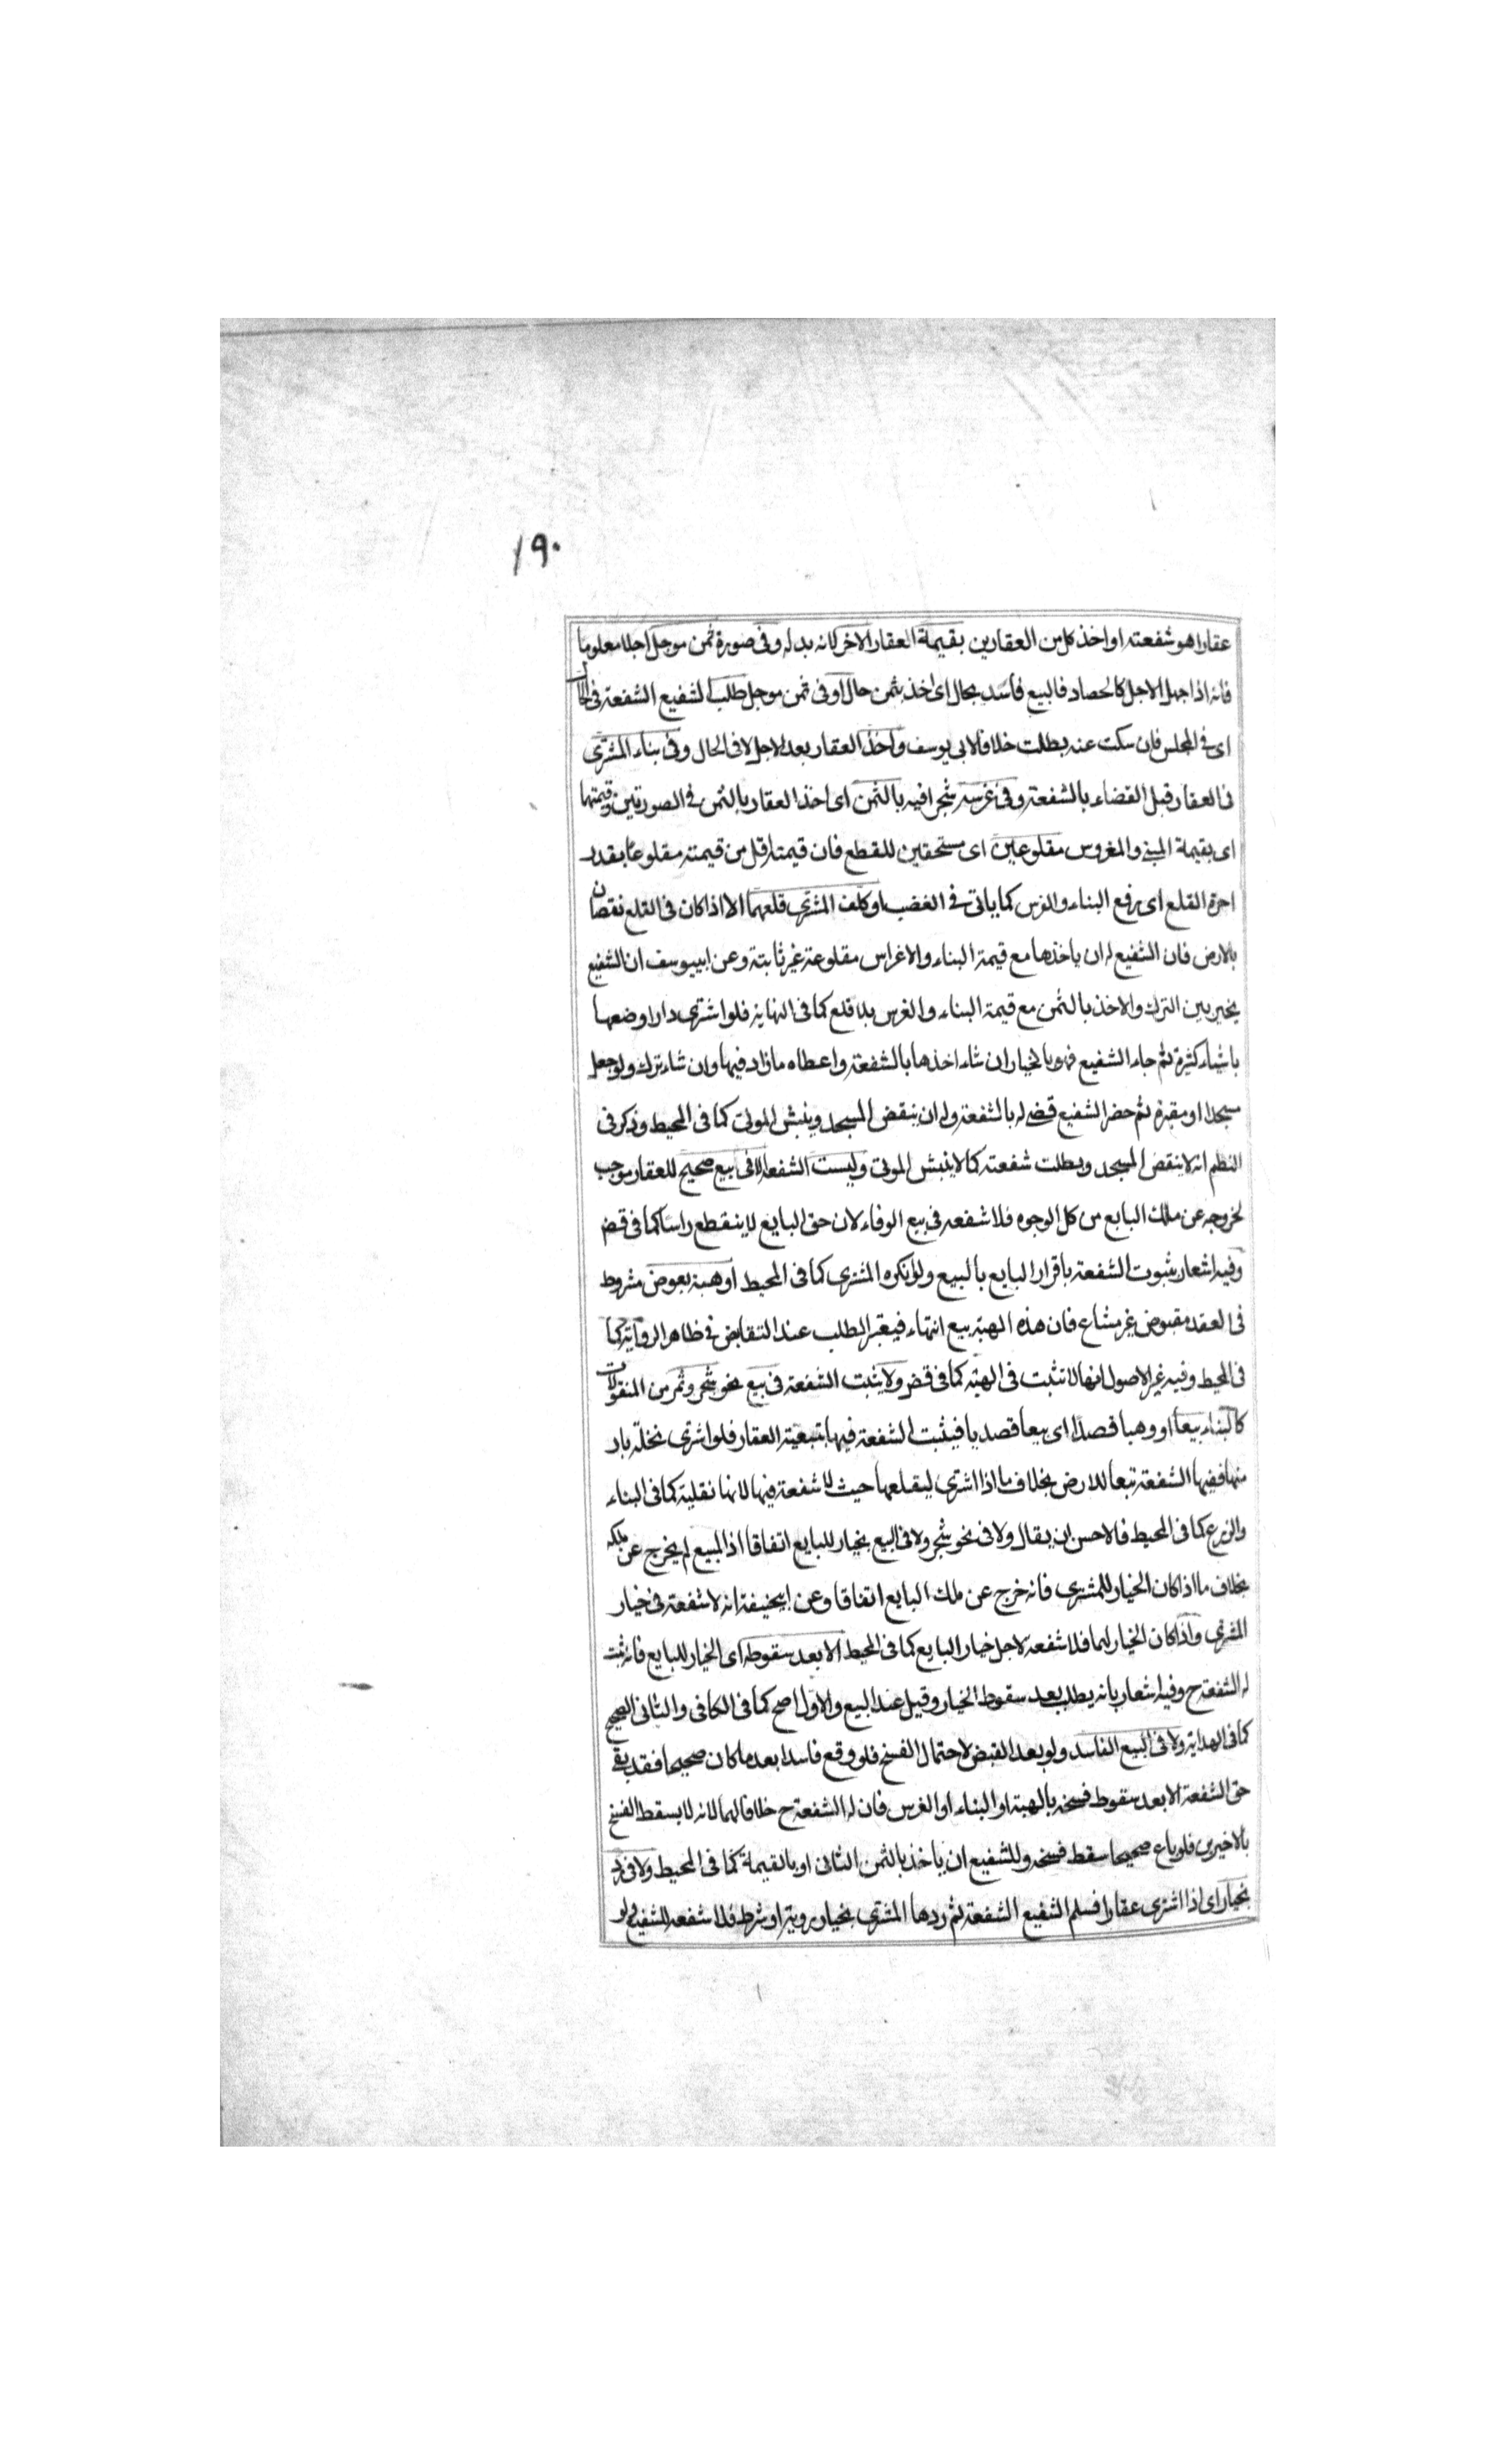 ١٩٠
عقارا هو شفعته او اخذ كل من العقارين بقيمة العقار الاخر لانه بدله وفى صورة ثمن موجل اجلا معلوما
فانه اذا جهل الاجل كالحصاد فالبيع فاسد بحال اى اخذ بثمن حال او فى ثمن موجل طلب الشفيع الشفعة فى الحال
اى فى المجلس فان سكت عنه بطلت خلافا لابى يوسف واخذ العقار بعد الاجل لا فى الحال وفى بناء المشترى
فى العقار قبل القضاء بالشفعة وفى غرسه شجرا فيه بالثمن اى اخذ العقار بالثمن فى الصورتين وقيمتها
اى بقيمة المبنى والمغروس مقلوعين اى مستحقين للقطع فان قيمته اقل من قيمته مقلوعا بقدر
اجرة القلع اى برفع البناء والغرس كما ياتى فى الغضب او كلف المشترى قلعهما الا اذا كان فى القلع نقصان
بالارض فان الشفيع له ان ياخذها مع قيمة البناء والاغراس مقلوعة غير ثابتة وعن ابيبوسف ان الشفيع
يخير بين الترك والاخذ بالثمن مع قيمة البناء والغرس بلا قلع كما فى النهاية فلو اشترى دارا وضعها
باشياء كثيرة ثم جاء الشفيع فهو بالخيار ان شاء اخذها بالشفعة واعطاه ما زاد فيها وان شاء ترك ولو جعل
مسجدا او مقبرة ثم حضر الشفيع قضى له بالشفعة وله ان ينقض المسجد وينبش الموتى كما فى المحيط وذكر فى
النظم انه لا ينقض المسجد وبطلت شفعته كما لا ينبش الموتى وليست الشفعة الا فى بيع صحيح للعقار موجب
لخروجه عن ملك البايع من كل الوجوه فلا شفعه فى بيع الوفاء لان حق البايع لا ينقطع راسا كما فى قض
وفيه اشعار بثبوت الشفعة باقرار البايع بالبيع ولو انكره المشترى كما فى المحيط او هبة بعوض مشروط
فى العقد مقبوض غير مشاع فان هذه الهبة بيع انتهاء فيعتبر الطلب عند التقابض فى ظاهر الرواية كما
فى المحيط وفيه غير الاصول انها لا تثبت فى الهبة كما فى قض ولا يثبت الشفعة فى بيع نحو شجر وثمر من المنقولات
كالبناء بيعا او وهبا قصدا اى بيعا قصديا فيثبت الشفعة فيها بتبعية العقار فلو اشترى نخلة بار
ضها ففيها الشفعة تبعا للارض بخلاف ما اذا اشترى ليقلعها حيث لا شفعة فيها لانها نقلية كما فى البناء
والزرع كما فى المحيط فالاحسن ان يقال ولا فى نحو شجر ولا فى البيع بخيار للبايع اتفاقا اذ المبيع لم يخرج عن ملكه
بخلاف ما اذا كان الخيار للمشترى فانه خرج عن ملك البايع اتفاقا وعن ابيحنيفة انه لا شفعة فى خيار
المشترى واذا كان الخيار لهما فلا شفعة لاجل خيار البايع كما فى المحيط الا بعد سقوطه اى الخيار للبايع فانه ثبت
له الشفعة ح وفيه اشعار بانه يطلب بعد سقوط الخيار وقيل عند البيع والاول اصح كما فى الكافى والثانى الصحيح
كما فى الهداية ولا فى البيع الفاسد ولو بعد القبض لاحتمال الفسخ فلو وقع فاسدا بعد ما كان صحيحا فقد بقى
حق الشفعة الا بعد سقوط فسخه بالهبة او البناء او الغرس فان له الشفعة ح خلافا لهما لانه لا يسقط الفسخ
بالاخيرين فلو باع صحيحا سقط فسخه وللشفيع ان ياخذ بالثمن الثانى او بالقيمة كما فى المحيط ولا فى رد
بخيار اى اذا اشترى عقارا فسلم الشفيع الشفعة ثم ردها المشترى بخيار روية او شرط فلا شفعه للشفيع ولو